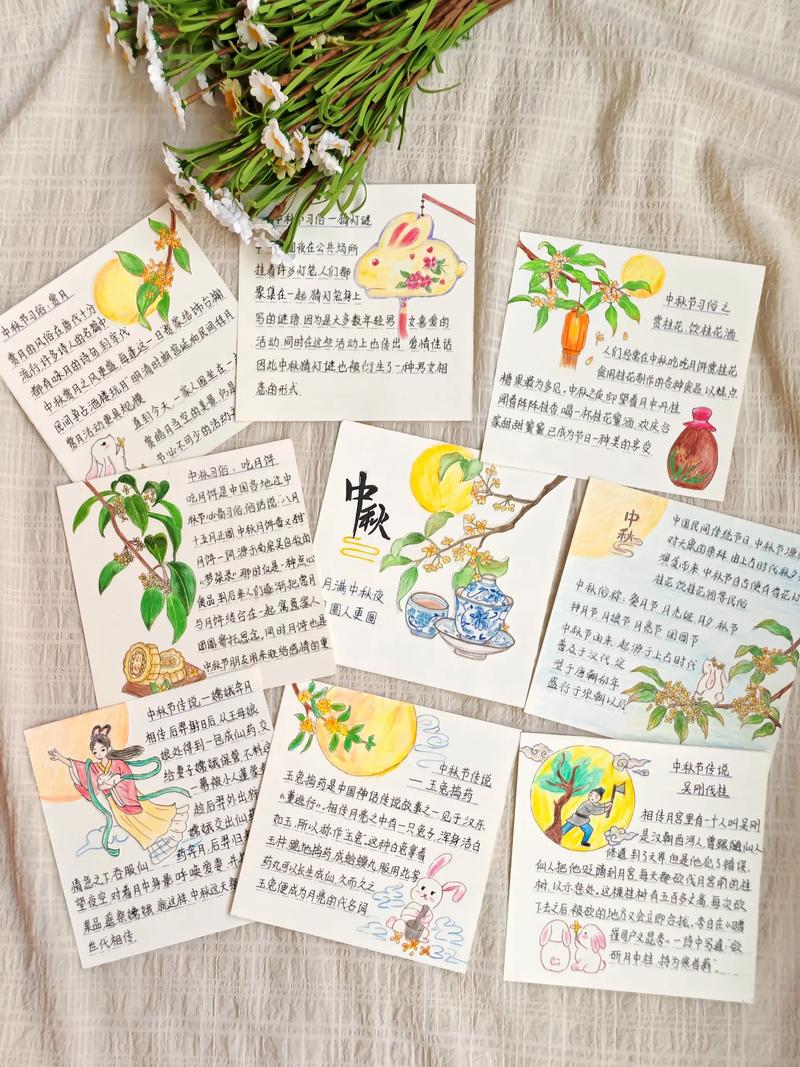 中秋节习俗·赏月
赏月的风俗在唐代十分
流行,许多诗人的名篇中
都有咏月的诗句 到宋代
中秋赏月之风更盛,每逢这一日
民间争占酒楼玩月 明清时期宫廷和民间拜月
赏月活动更具规模
直到今天,一家人围坐在一
赏皓月当空的美景仍是
节必不可少的活动
中秋节习俗—猜灯谜
夜在公共场所
挂着许多灯笼,人们都
聚集在一起,猜灯笼身上
写的谜语,因为是大多数年轻男女喜爱的
活动,同时在这些活动上也传出 爱情佳话
因此中秋猜灯谜也被衍生了一种男女相
恋的形式.
中秋节习俗之
赏桂花、饮桂花酒
人们经常在中秋吃月饼赏桂花
食用桂花制作的各种食品,以糕点
糖果最为多见,中秋之夜,仰望着月中丹桂
闻着阵阵桂香,喝一杯桂花蜜酒,欢庆合
家甜甜蜜蜜,已成为节日一种美的享受
中秋节习俗:吃月饼
吃月饼是中国各地过中
秋节必备习俗,俗话说:八月
十五月正圆,中秋月饼香又甜
月饼一词,源于南宋吴自牧的
《梦粱录》那时仅是一种点心
食品,到后来人们逐渐把赏月
与月饼结合在一起,寓意家人
团圆,寄托思念,同时月饼也是
中秋节朋友用来联络感情的重
中秋
月满中秋夜
圆人更圆
中秋
中国民间传统节日,中秋节源
对天象的崇拜,由上古时代秋夕
演变而来,中秋节自古便有赏花灯
桂花、饮桂花酒等民俗
中秋俗称:祭月节、月光诞、月夕、秋节
拜月节、月娘节、月亮节、团圆节
中秋节由来:起源于上古时代
普及于汉代,定
型于唐朝初年
盛行于宋朝以后
中秋节传说—嫦娥奔月
相传后羿射日后,从王母娘
娘处得到一包成仙药,交
给妻子嫦娥保管,不料这
一幕被小人蓬蒙看
趁后羿外出
嫦娥交出仙药
情急之下吞服仙
药奔月,后羿归来
望夜空,对着月中身影呼唤爱妻,并
果品遥祭嫦娥,就这样,中秋这天
世代相传.
中秋节传说
—玉兔捣药
玉兔捣药是中国神话传说故事之一,见于汉乐
《董逃行》,相传月亮之中有一只兔子,浑身洁白
如玉,所以称作"玉兔",这种白兔拿着
玉杵,跪地捣药,成蛤蟆丸,服用此等
药丸可以长生成仙,久而久之
玉兔便成为月亮的代名词
中秋节传说
吴刚伐桂
相传月宫里有一个人叫吴刚
是汉朝西河人,曾跟随仙人
修道,到了天界,但是他犯了错误,
仙人把他贬谪到月宫,每天砍伐月宫前的桂
树,以示惩处,这棵桂树有五百多丈高,每次砍
下去之后,被砍的地方又会立即合拢,李白在《赠
崔司户文昆季》一诗中写道:"欲
斫月中桂,持为寒者薪".